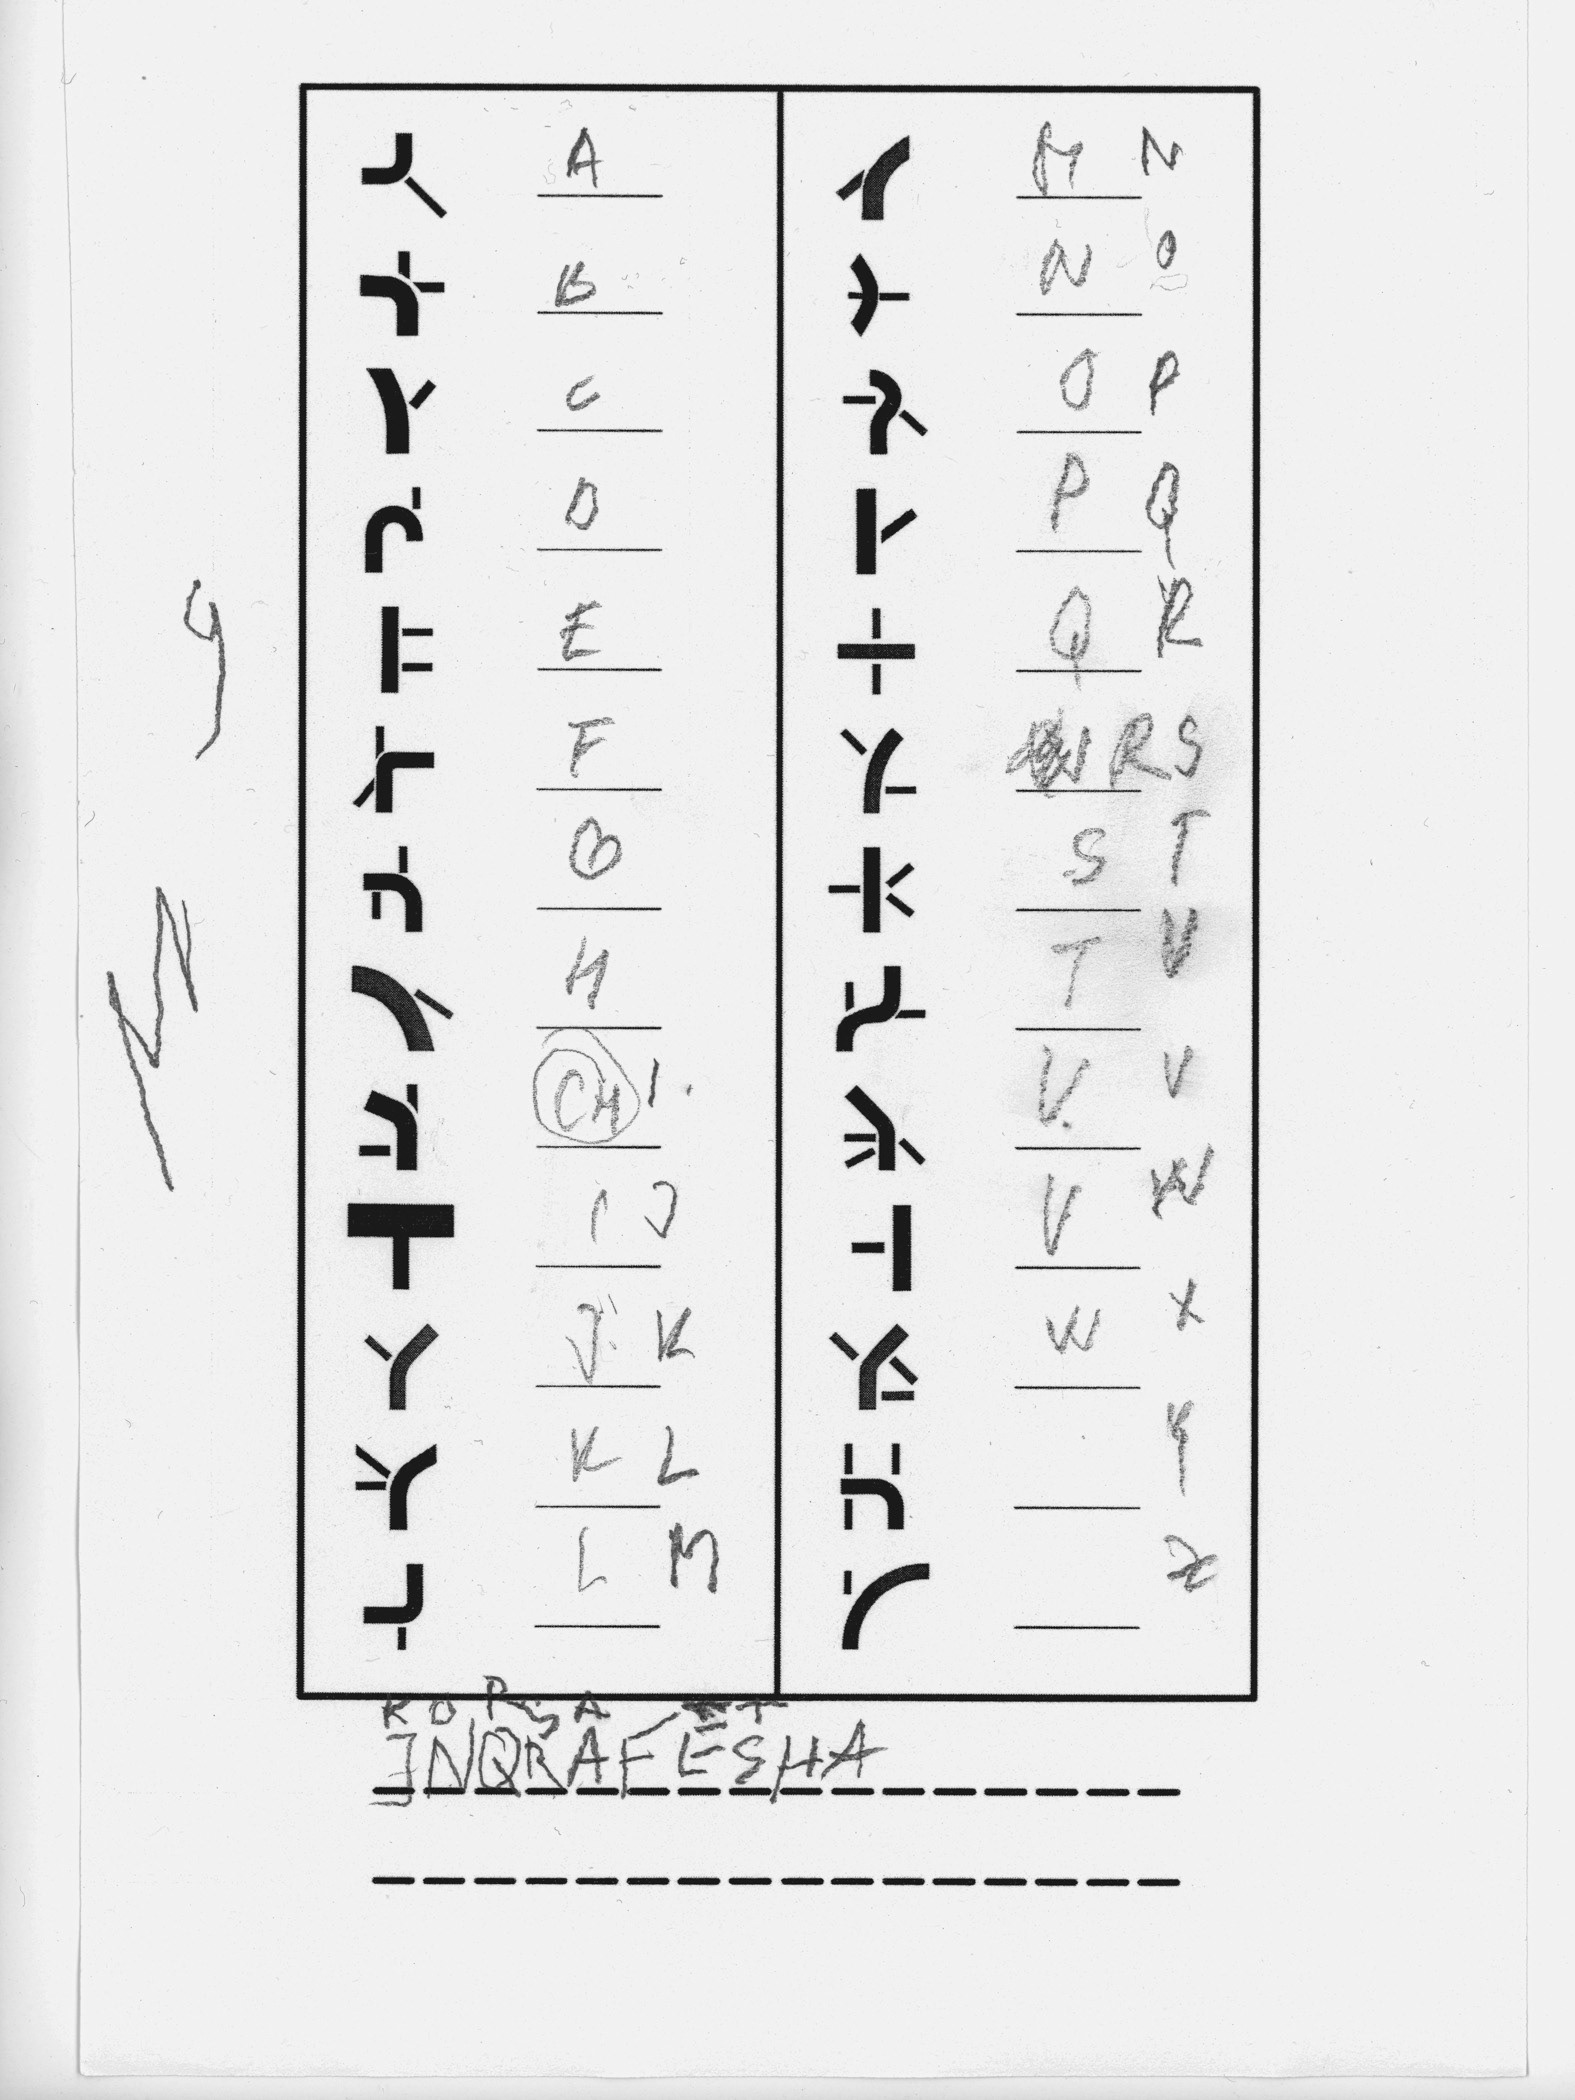 A
B
C
D
E
F
G
H
CH I.
I J
J. K
K L
L M
M N
N O
O P
P Q
Q R
R S
S T
T U
V. V
V W
W X
Y
Z
K O P S A
J N Q R A F E S H A